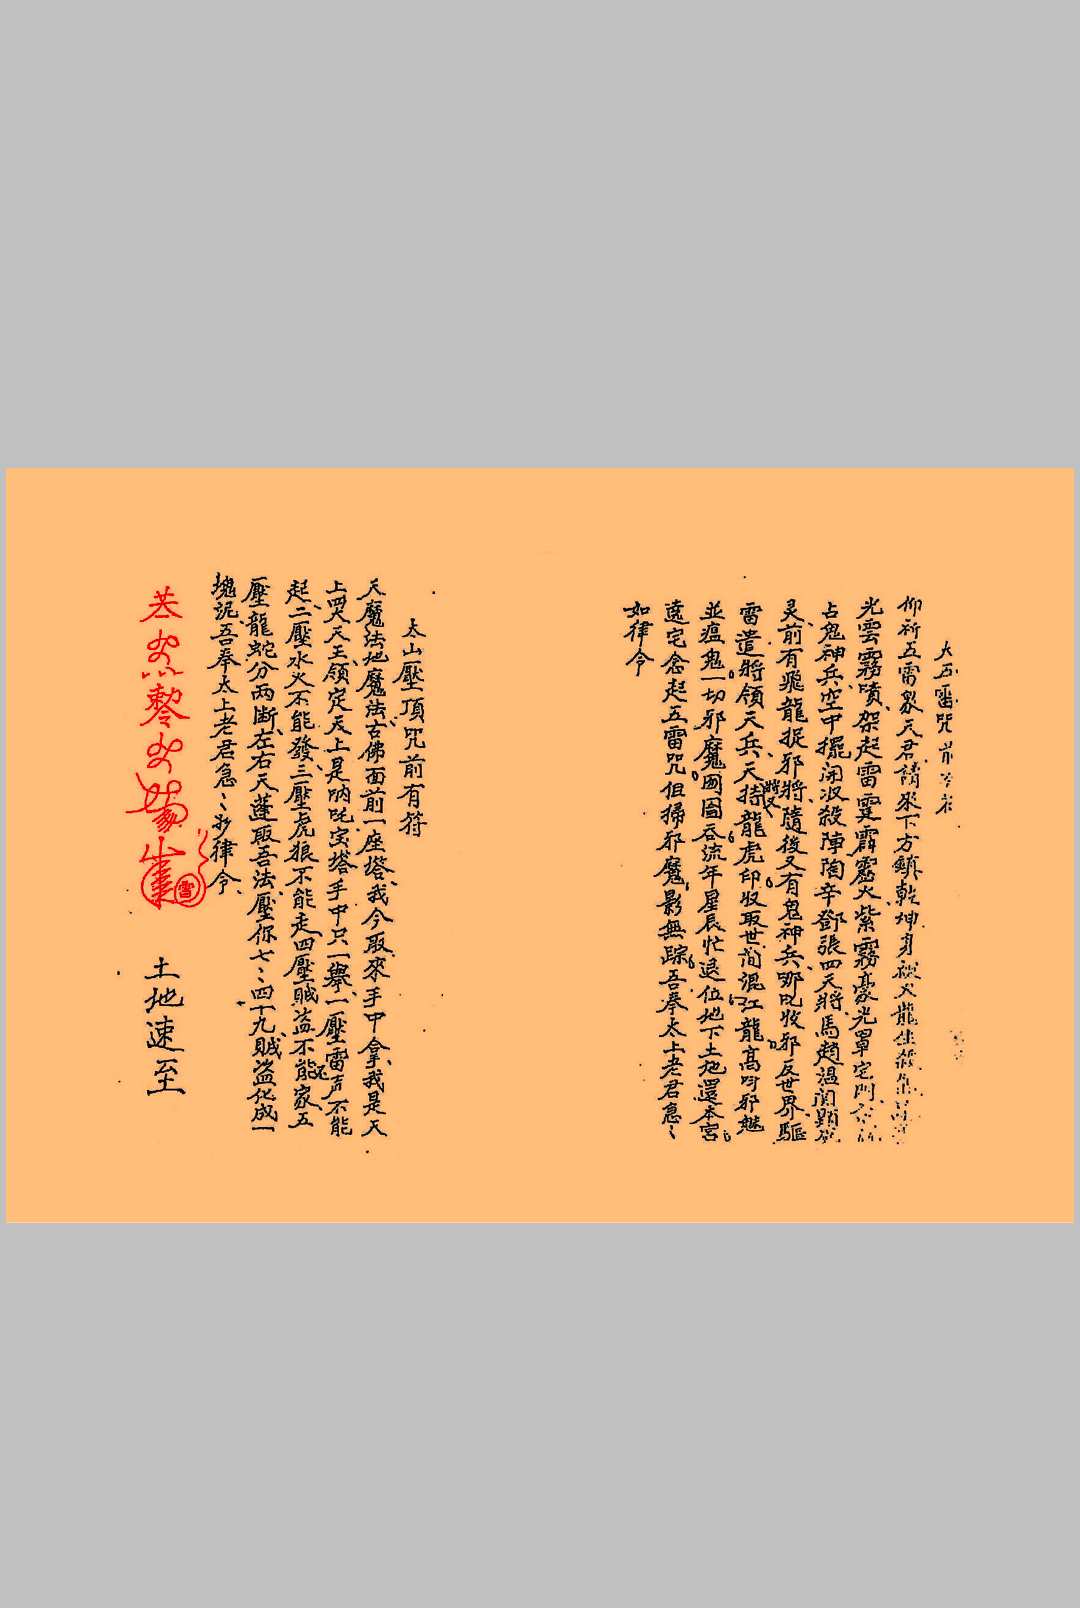 大五雷咒前
仰祈五雷眾天君請來下方鎮乾坤身被火龍坐殺
光雲霧噴架起雷霆霹靂火紫霧豪光罩宅門
占鬼神兵空中擺開收殺陣陶辛鄧張四天將馬趙溫關顯威
灵前有飛龍捉邪將隨後又有鬼神兵哪吒收邪反世界驅
雷遣將領天兵天將又持龍虎印收取世间混江龍高叫邪魅
並瘟鬼一切邪魔囫圇吞流年星辰忙退位地下土地還本宮
遠宅念起五雷咒但掃邪魔影無踪吾奉太上老君急〻
如律令
太山壓頂咒前有符
天魔法地魔法古佛面前一座塔我今取來手中拿我是天
上四大天王领定天上是吶吒宝塔手中只一舉一壓雷声不能
起二壓水火不能發三壓虎狼不能走四壓賊盜不能还家五
壓龍蛇分两断左右天蓬取吾法壓你七〻四十九賊盜化成一
塊泥吾奉太上老君急〻律令
雷
土地速至